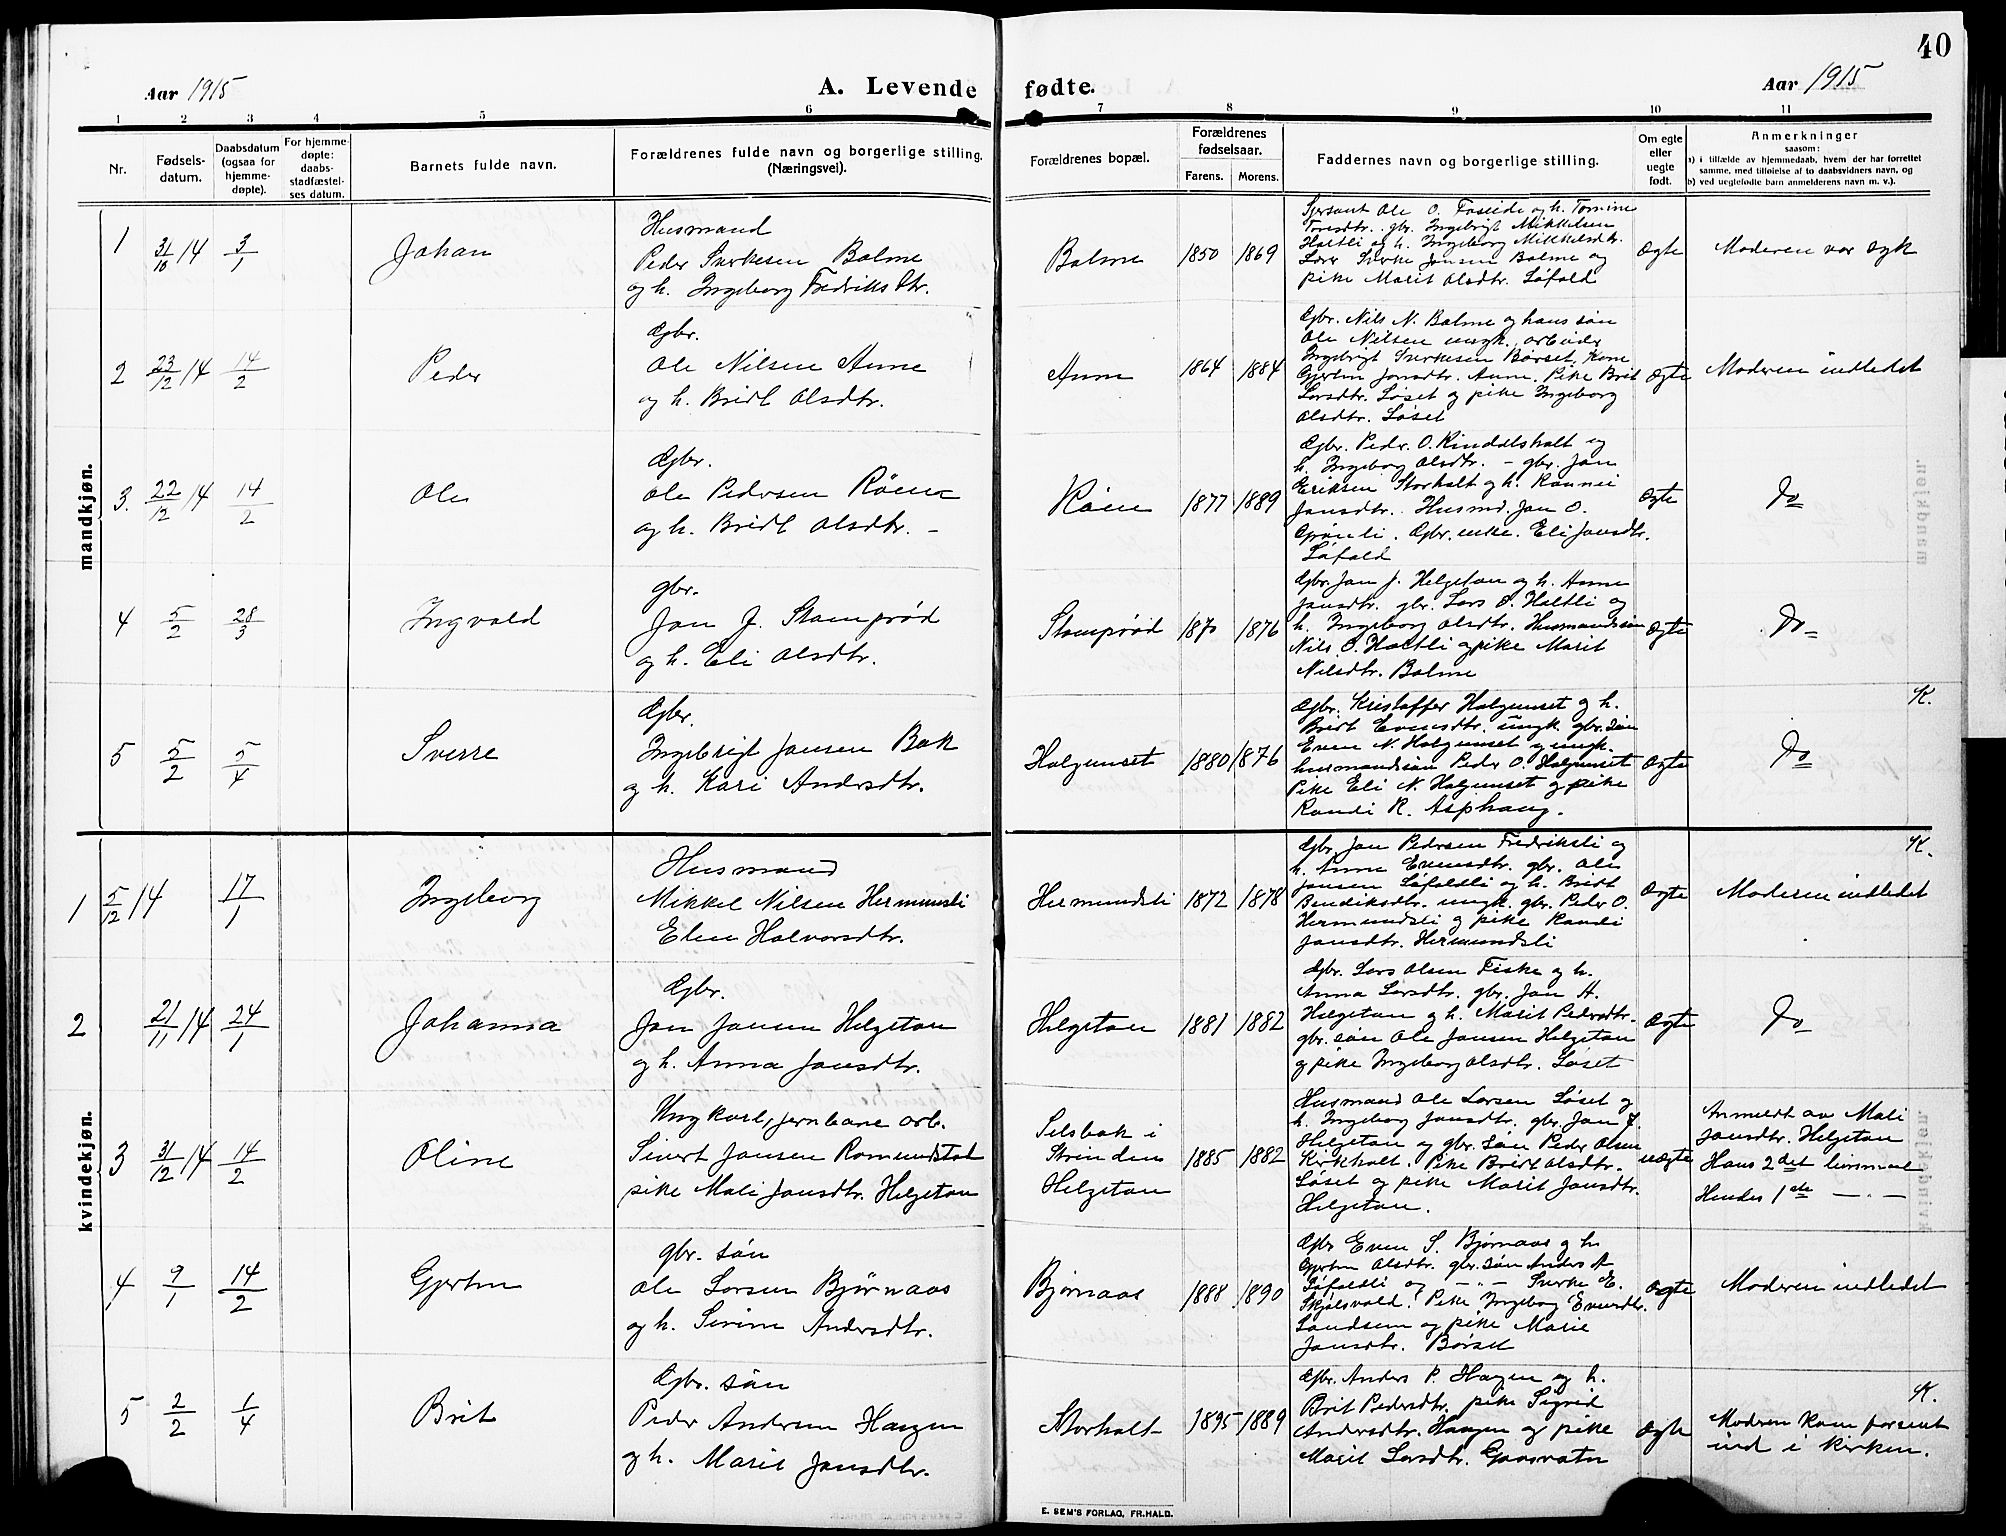 40
Aar 1915
A. Levende fødte.
Aar 1915
1 2 3 4 5 6 7 8 9 10 11
Nr.
Fødsels-
datum.
Daabsdatum
(ogsaa for
hjemme-
døpte).
For hjemme-
døpte:
daabs-
stadfæstel-
ses datum.
Barnets fulde navn.
Forældrenes fulde navn og borgerlige stilling.
(Næringsvei).
Forældrenes bopæl.
Forældrenes
fødselsaar.
Farens. Morens.
Faddernes navn og borgerlige stilling.
Om egte
eller
uegte
født.
Anmerkninger
saasom:
a) i tilfælde av hjemmedaab, hvem der har forrettet
samme, med tilføielse af to daabsvidners navn, og
b) ved uegtefødte barn anmelderens navn m. v.).
mandkjøn.
1 31/10 14 3/1 Johan
Husmand
Peder Sverkesen Bolme
og h. Ingeborg Fredriksdtr.
Bolme 1850 1869
Sersant Ole O. Foseide og h. Tomine
Toresdtr. gbr. Ingebrigt Mikkelsen
Holtli og h. Ingeborg Mikkelsdtr.
Lærer Sverke Jonsen Bolme og
pike Marit Olsdtr. Løfald
Ægte Moderen var syk
2 23/12 14 14/2 Peder
Gbr.
Ole Nilsen Aune
og h. Bridt Olsdtr.
Aune 1864 1884
Gbr. Nils N. Bolme og hans søn
Ole Nilsen ungk. arbeider
Ingebrigt Sverkesen Børset, Kone
Gjertru Jonsdtr. Aune. Pike Brit
Larsdtr. Løset og pike Ingeborg
Olsdtr. Løset
Ægte Moderen indledet
3. 22/12 14 14/2 Ole
Gbr.
Ole Pedersen Røen
og h. Bridt Olsdtr. –
Røen 1877 1889
Gbr. Peder O. Rindalsholt og
h. Ingeborg Olsdtr. – gbr. Jon
Eriksen Storholt og h. Rannei
Jonsdtr. Husmd. Jon O.
Grønli. Gbr. enke. Eli Jonsdtr.
Løfald
Ægte Do
4 5/2 28/3 Ingvald
gbr.
Jon J. Stomprød
og h. Eli Olsdtr.
Stomprød 1870 1876
Gbr. Jon J. Helgetun og h. Anne
Jonsdtr. gbr. Lars O. Holtli og
h. Ingeborg Olsdtr. Husmandssøn
Nils O. Holtli og pike Marit
Nilsdtr. Bolme
Ægte Do
5 5/2 5/4 Sverre
Gbr.
Ingebrigt Jonsen Bak
og h. Kari Andersdtr.
Halgunset 1880 1876
Gbr. Kristoffer Halgunset og h.
Bridt Evensdtr. ungk. gbr. søn
Even N. Halgunset og ungk.
husmandssøn Peder O. Halgunset
Pike Eli N. Halgunset og pike
Randi R. Asphaug.
Ægte Do K.
kvindekjøn.
1 5/12 14 17/1 Ingeborg
Husmand
Mikkel Nilsen Hermunsli
Elen Halvorsdtr.
Hermundsli 1872 1878
Gbr. Jon Pedersen Fredriksli og
h. Anne Evensdtr. gbr. Ole
Jonsen Løfaldli og h. Bridt
Bendiksdtr. ungk. gbr. Peder O.
Hermundsli og pike Randi
Jonsdtr. Hermundsli
Ægte Moderen indledet K.
2 21/11 14 24/1 Johanna
Gbr.
Jon Jonsen Helgetun
og h. Anna Jonsdtr.
Helgetun 1881 1882
Gbr. Lars Olsen Fiske og h.
Anna Larsdtr. gbr. Jon H.
Helgetun og h. Marit Pedersdtr.
gbr. søn Ole Jonsen Helgetun
og pike Ingeborg Olsdtr. Løset
Ægte Do
3 31/12 14 14/2 Oline
Ungkarl, jernbane arb.
Sivert Jonsen Romundstad
pike Mali Jonsdtr. Helgetun
Selsbak i
Strinden
Helgetun
1885 1882
Husmand Ole Larsen Løset og
h. Ingeborg Jonsdtr. gbr. Jon J.
Helgetun og gbr. søn Peder Olsen
Kirkholt. Pike Bridt Olsdtr.
Løset og pike Marit Jonsdtr.
Helgetun.
uægte
Anmeldt av Mali
Jonsdtr. Helgetun
Hans 2det leiermaal
Hendes 1ste – " –
4 9/1 14/2 Gjertru
gbr. søn
Ole Larsen Bjørnaas
og h. Sirine Andersdtr.
Bjørnaas 1888 1890
Gbr Even S. Bjørnaas og h.
Gjertru Olsdtr. gbr. søn Anders A
Løfaldli og – " – Sverke E.
Skjølsvold. Pike Ingeborg Evensdtr.
Landsem og pike Marie
Jonsdtr. Børset
Ægte Moderen indledet
5 2/2 1/4 Brit
Gbr. søn
Peder Andersen Haugen
og h. Marit Jonsdtr.
Storholt 1895 1889
Gbr. Anders P. Haugen og h.
Brit Pedersdtr. pike Sigrid
Andersdtr. Haugen og pike
Marit Larsdtr. Gaasvatn
Ægte
K.
Moderen kom forsent
ind i kirken.
E. SEM'S FORLAG, FR.HALD.